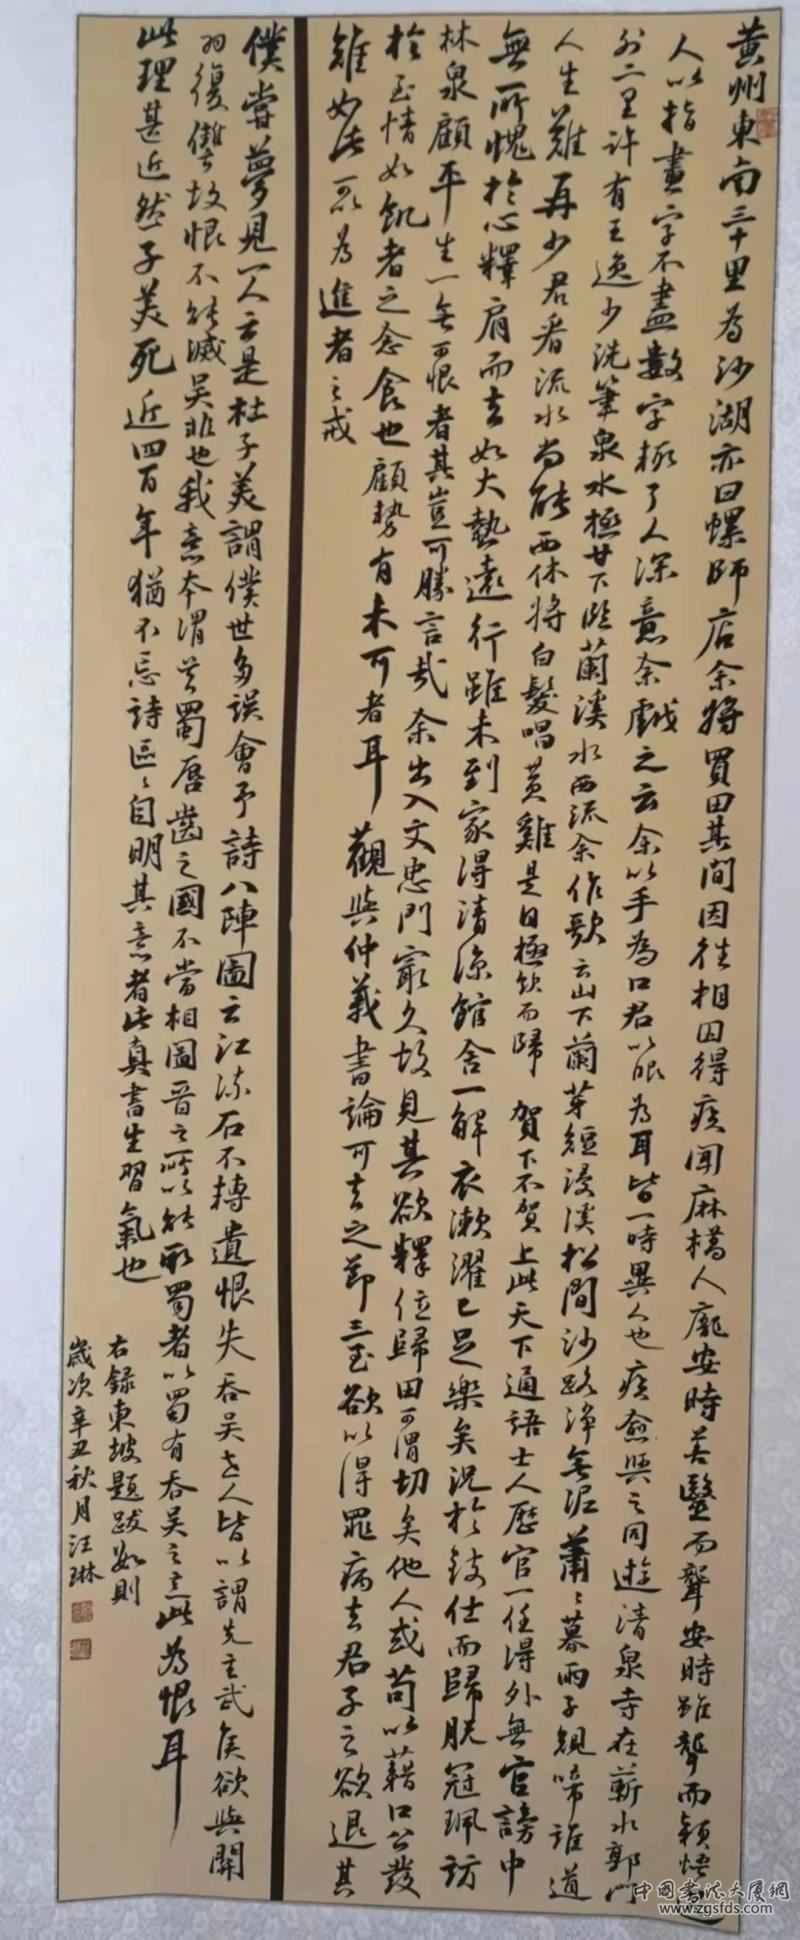 黄州東南三十里為沙湖亦曰螺師店余將買田其間因往相田得疾聞麻橋人龐安時善醫而聾安時雖聾而穎悟過
人以指畫字不盡數字極了人深意余戲之云余以手為口君以眼為耳皆一時異人也疾愈與之同遊清泉寺在蘄水郭門
外二里許有王逸少洗筆泉水極甘下臨蘭溪水西流余作歌云山下蘭芽短浸溪松間沙路淨無泥蕭〻暮雨子規啼誰道
人生難再少君看流水尚能西休將白髮唱黃雞是日極飲而歸 賀下不賀上此天下通語士人歷官一任得外無官謗中
無所愧於心釋肩而去如大熱遠行雖未到家得清涼館舍一解衣漱濯已足樂矣況於致仕而歸脫冠珮訪
林泉顧平生一無可恨者其豈可勝言哉余出入文忠門最久故見其欲釋位歸田可謂切矣他人或苟以藉口公發
於至情如飢者之念食也顧勢有未可者耳 觀與仲義書論可去之節三至欲以得罪病去君子之欲退其
難如此可為進者之戒
僕嘗夢見一人云是杜子美謂僕世多誤會予詩八陣圖云江流石不轉遺恨失吞吳世人皆以謂先主武侯欲與關
羽復讐故恨不能滅吳非也我意本謂吳蜀唇齒之國不當相圖晉之所以能取蜀者以蜀有吞吳之意此為恨耳
此理甚近然子美死近四百年猶不忘詩區〻自明其意者此真書生習氣也
右錄東坡題跋數則
歲次辛丑秋月汪琳
中國書法大廈網
www.zgsfds.com